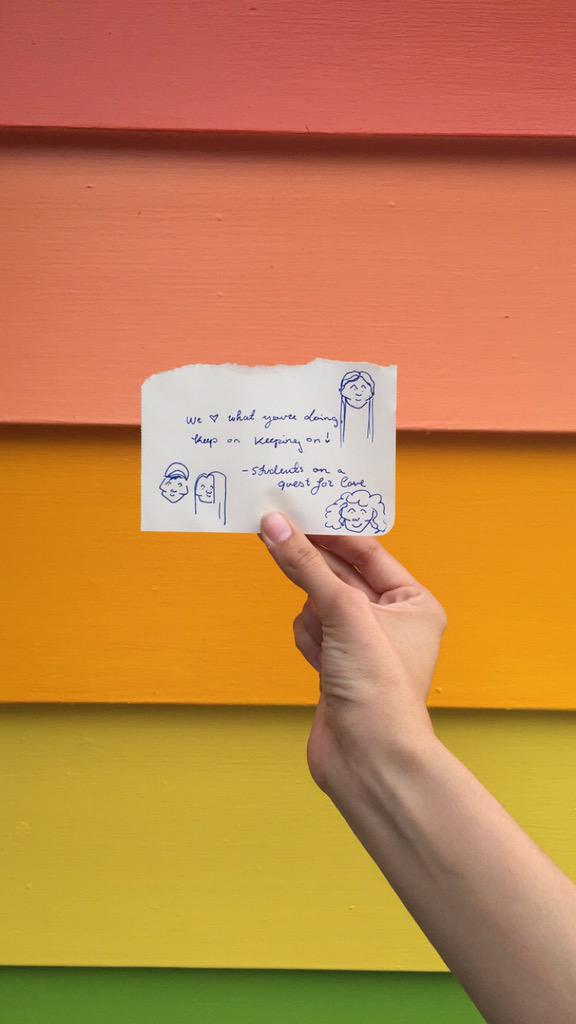 We ♡ what you're doing,
keep on keeping on!
-Students on a
quest for love